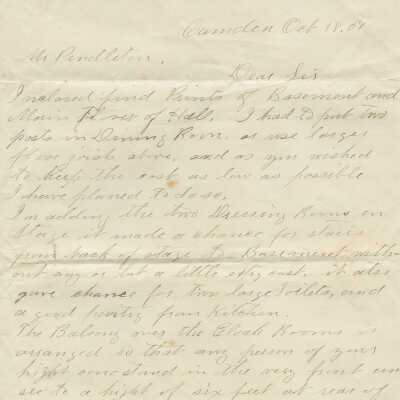 Camden Oct 18. 04
Mr Pendleton.
Dear Sir
Inclosed find Prints of Basement and
Main Floor of Hall. I had to put two
posts in Dining Room. or use larger
floor joists above, and as you wished
to keep the cost as low as possible
I have planed to do so.
In adding the two Dressing Rooms on
Stage it made a chance for stairs
from back of stage to Basement with-
out any or but a little cost. it also
gave chance for two large Toilets, and
a good pantry from Kitchen.
The Balcony over the Cloak Rooms is
arranged so that any person of your
hight can stand in the very front
to a hight of six feet at rear of